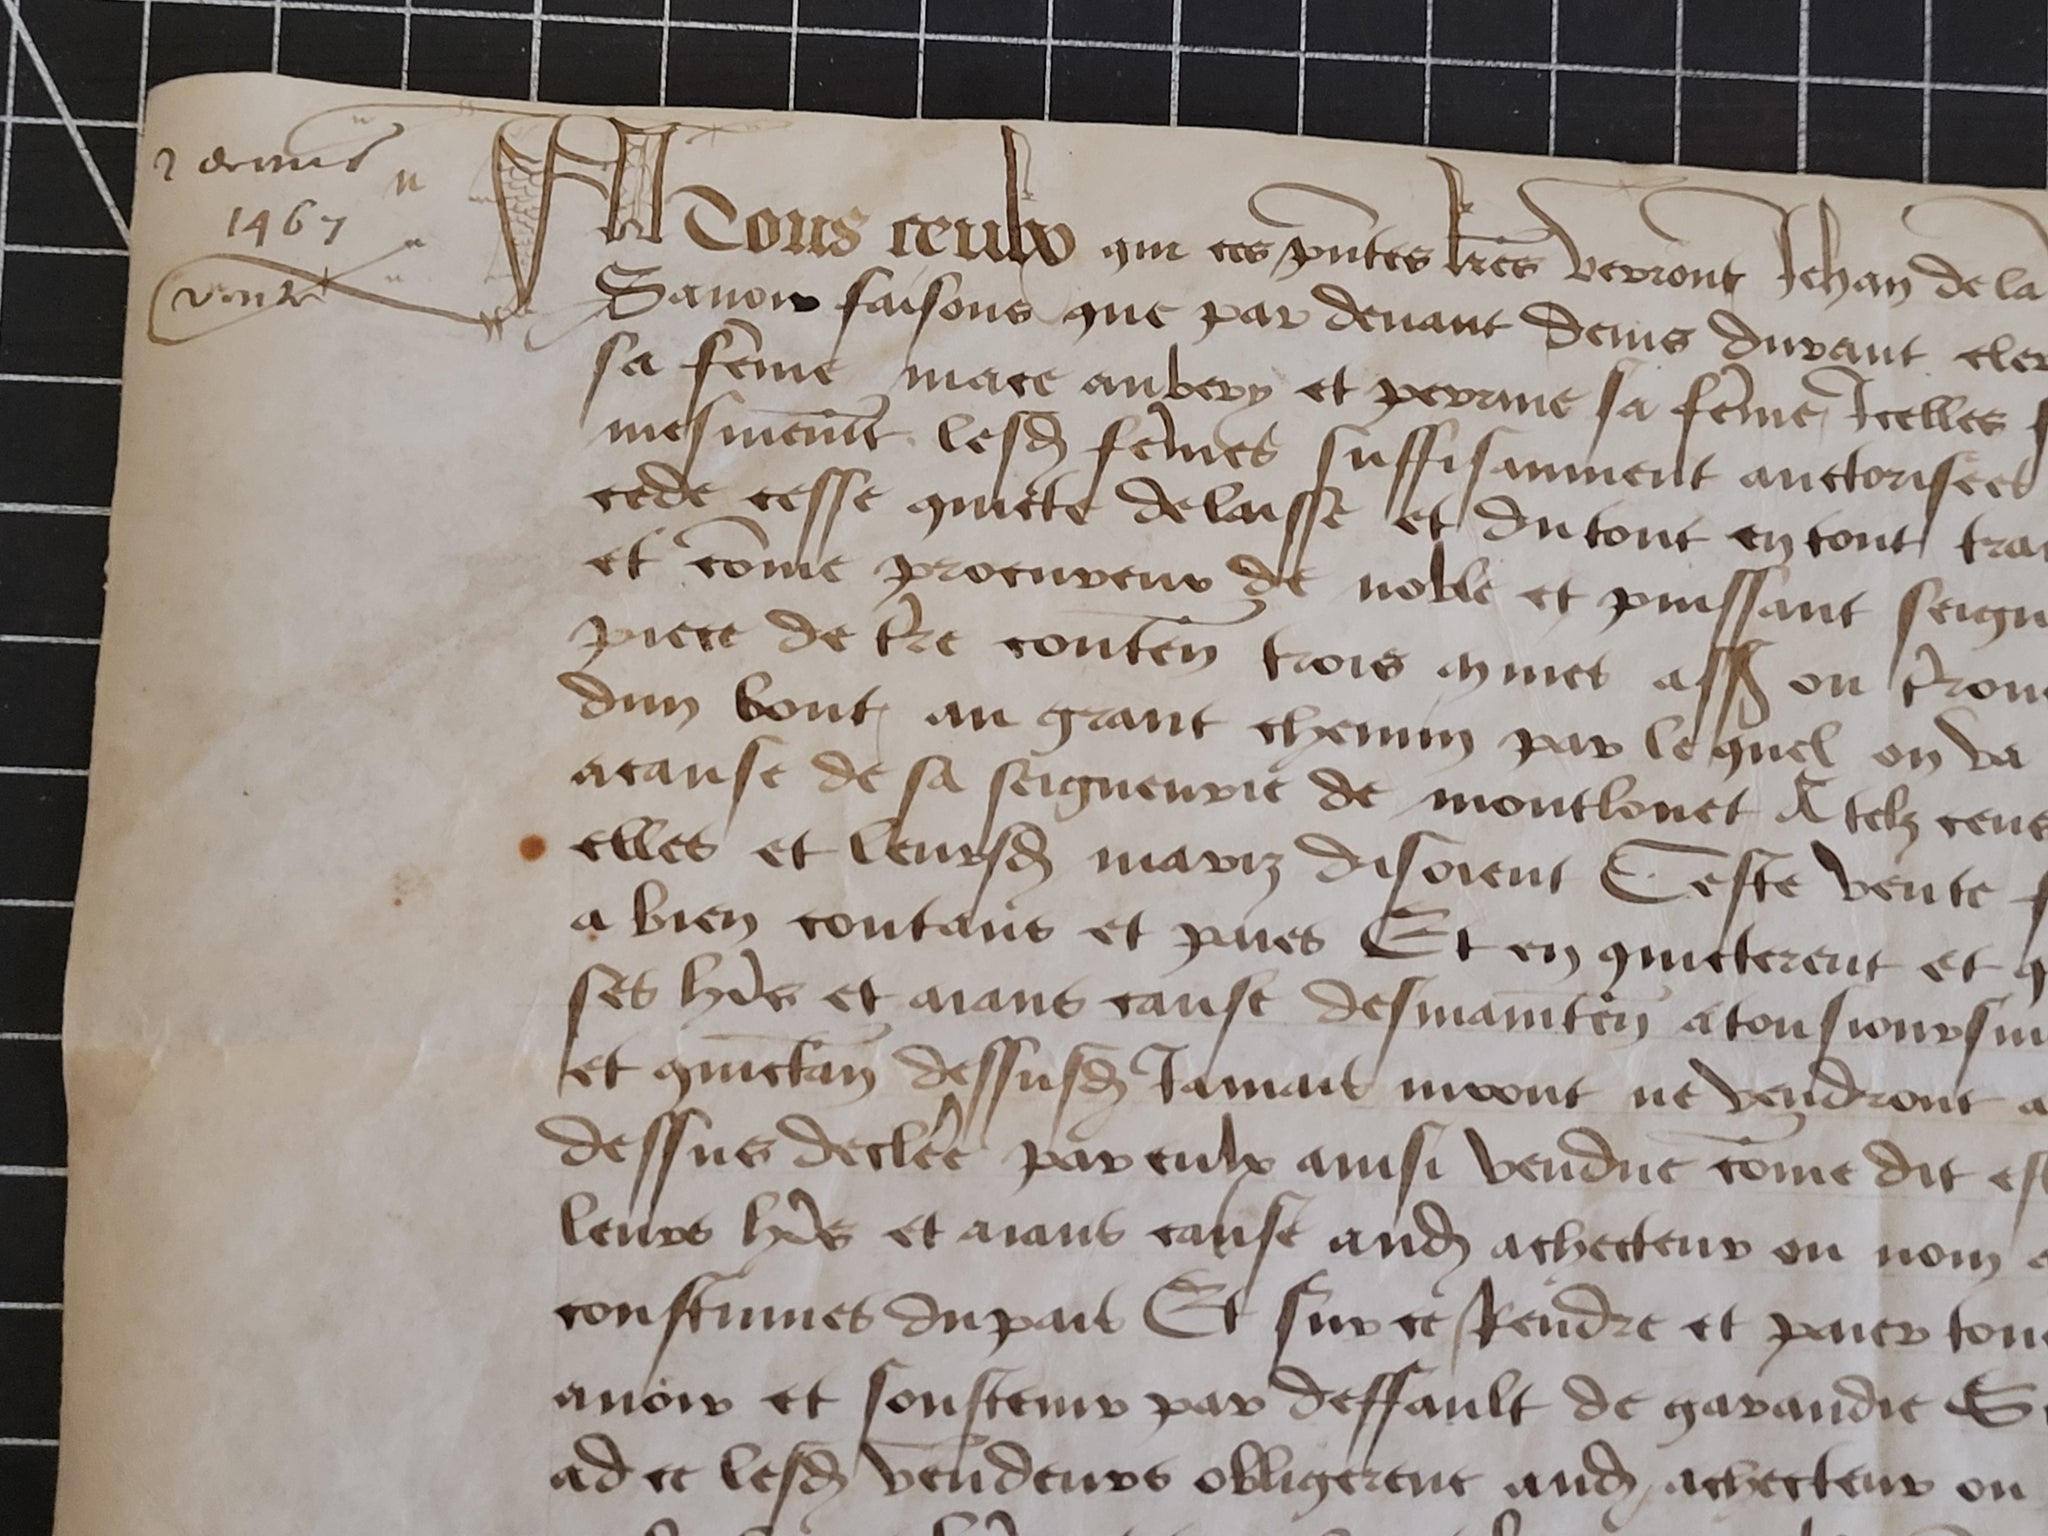 1467
vente
A Tous ceulx qui ces pntes lres verront Jehan de la
Savoir faisons que par devant Denis durant cler
sa feme mace aubery et perrine sa feme Icelles
mesmemt lesd femes suffisamment auctorisees
cede cesse quicte delaisse et du tout en tout tra
et come procureur de noble et puissant seign
piece de tre conten trois mines ass ou trou
dun bout au grant chemin par le quel on va
acause de sa seigneurie de montlouet A telz cens
elles et leursd mariz disoient Ceste vente f
a bien contans et paies Et en quicterent et q
ses hrs et aians cause desmainten a tousiours
et quictan dessusd Jamais ne vendront a
dessus declree par eulx ainsi vendue come dit est
leurs hrs et aians cause aud achecteur ou nom
coustumes du pais Et sur ce Rendre et paier tou
avoir et soustenir par deffault de garandie
ad ce lesd vendeurs obligerent aud achecteur ou